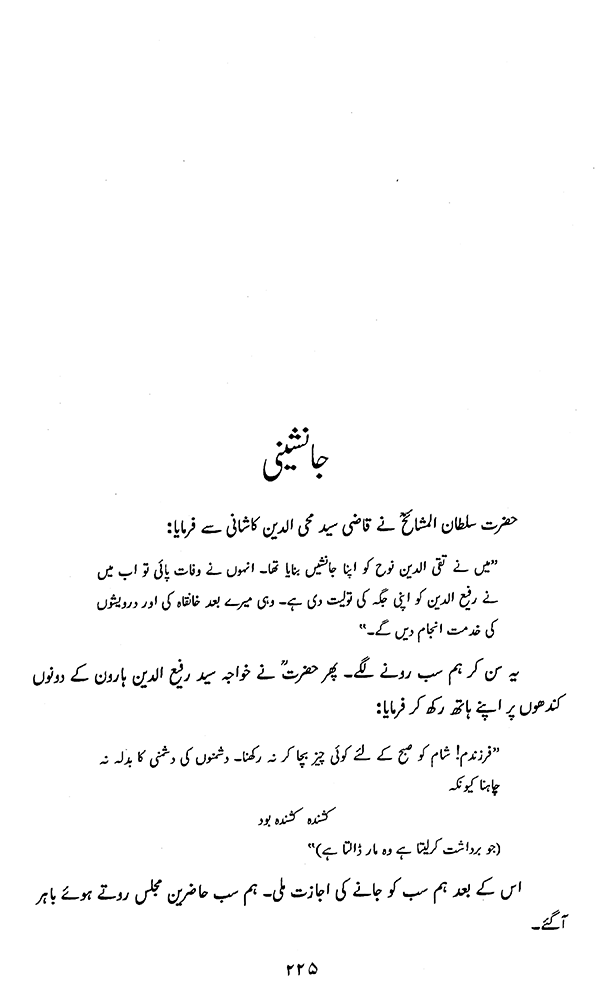 جانشینی
حضرت سلطان المشائخؒ نے قاضی سید محی الدین کاشانی سے فرمایا:
”میں نے تقی الدین نوح کو اپنا جانشیں بنایا تھا۔ انہوں نے وفات پائی تو اب میں
نے رفیع الدین کو اپنی جگہ کی تولیت دی ہے۔ وہی میرے بعد خانقاہ کی اور درویشوں
کی خدمت انجام دیں گے۔“
یہ سن کر ہم سب رونے لگے۔ پھر حضرتؒ نے خواجہ سید رفیع الدین ہارون کے دونوں
کندھوں پر اپنے ہاتھ رکھ کر فرمایا:
”فرزندم! شام کو صبح کے لئے کوئی چیز بچا کر نہ رکھنا۔ دشمنوں کی دشمنی کا بدلہ نہ
چاہنا کیونکہ
کشندہ کشندہ بود
(جو برداشت کرلیتا ہے وہ مار ڈالتا ہے)“
اس کے بعد ہم سب کو جانے کی اجازت ملی۔ ہم سب حاضرین مجلس روتے ہوئے باہر
آگئے۔
۲۲۵